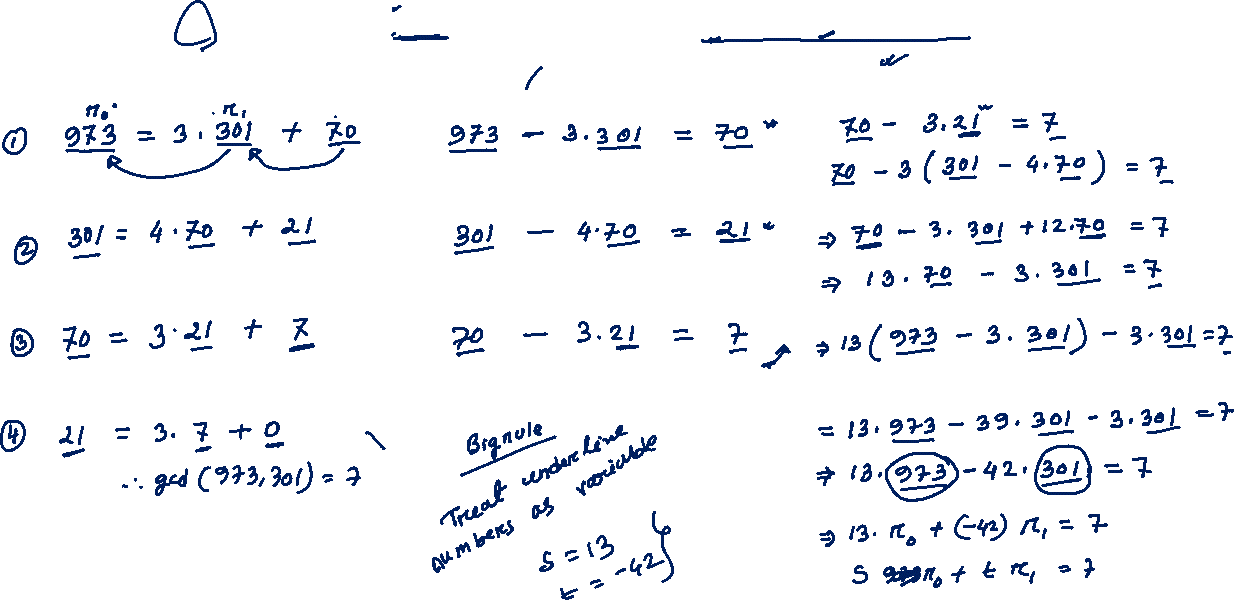 r₀ r₁
① 973 = 3 . 301 + 70
② 301 = 4 . 70 + 21
③ 70 = 3 . 21 + 7
④ 21 = 3 . 7 + 0
∴ gcd (973, 301) = 7
973 - 3 . 301 = 70
301 - 4 . 70 = 21
70 - 3 . 21 = 7
Bigrule
Treat underline
numbers as variable
S = 13
t = -42
70 - 3 . 21 = 7
70 - 3 ( 301 - 4 . 70 ) = 7
⇒ 70 - 3 . 301 + 12 . 70 = 7
⇒ 13 . 70 - 3 . 301 = 7
⇒ 13 ( 973 - 3 . 301 ) - 3 . 301 = 7
= 13 . 973 - 39 . 301 - 3 . 301 = 7
⇒ 13 . 973 - 42 . 301 = 7
⇒ 13 . r₀ + (-42) r₁ = 7
S r₀ + t r₁ = 7